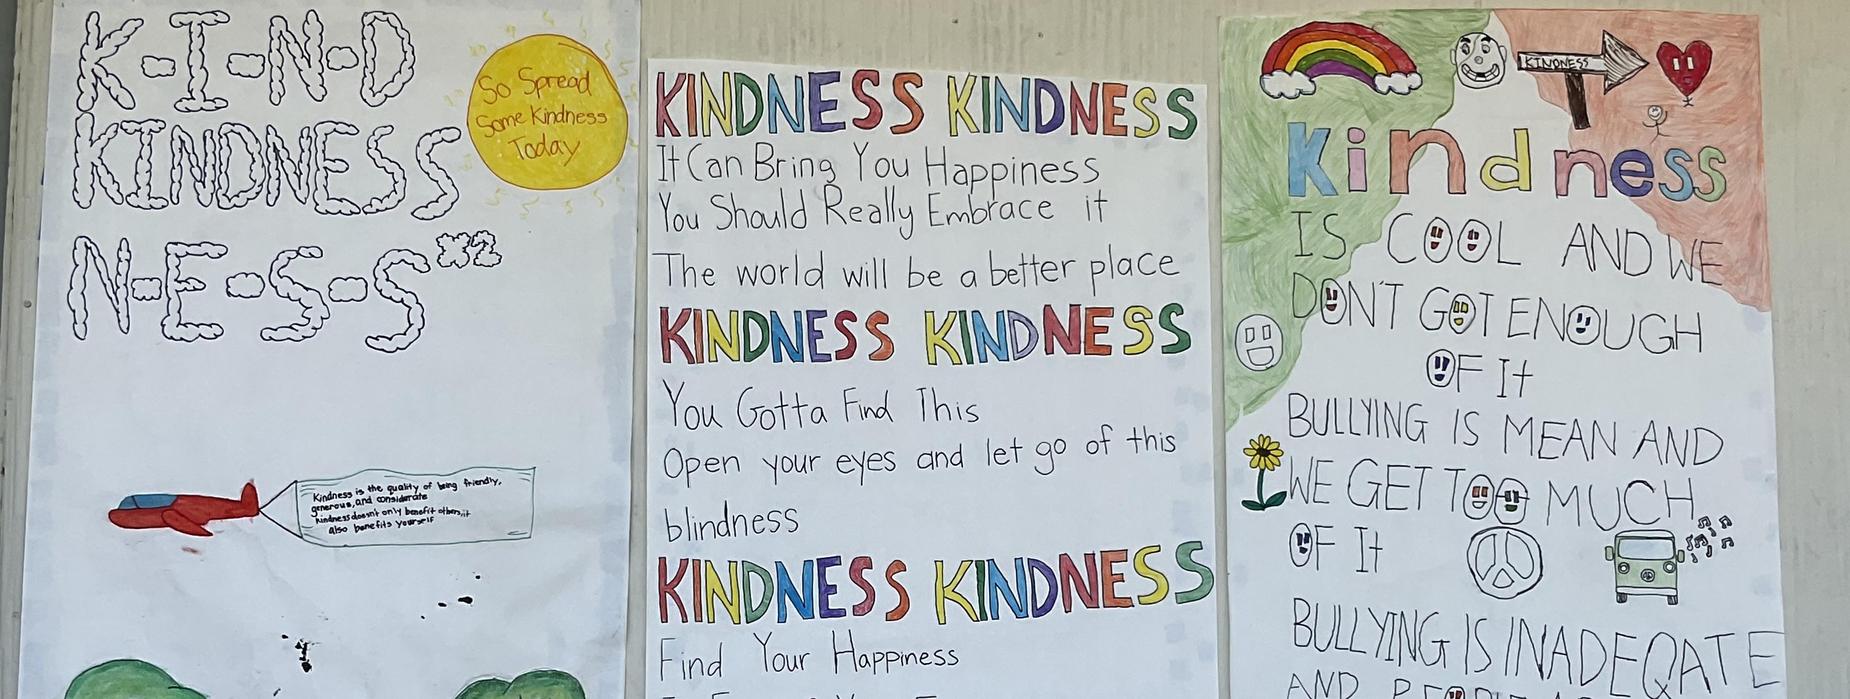 K-I-N-D
KINDNESS
N-E-S-S x2
So Spread
Some Kindness
Today
Kindness is the quality of being friendly,
generous, and considerate
kindness doesn't only benefit others, it
also benefits yourself
KINDNESS KINDNESS
It Can Bring You Happiness
You Should Really Embrace it
The world will be a better place
KINDNESS KINDNESS
You Gotta Find This
Open your eyes and let go of this
blindness
KINDNESS KINDNESS
Find Your Happiness
KINDNESS
Kindness
IS COOL AND WE
DON'T GOT ENOUGH
OF It
BULLYING IS MEAN AND
WE GET TOO MUCH
OF It
BULLYING IS INADEQATE
AND